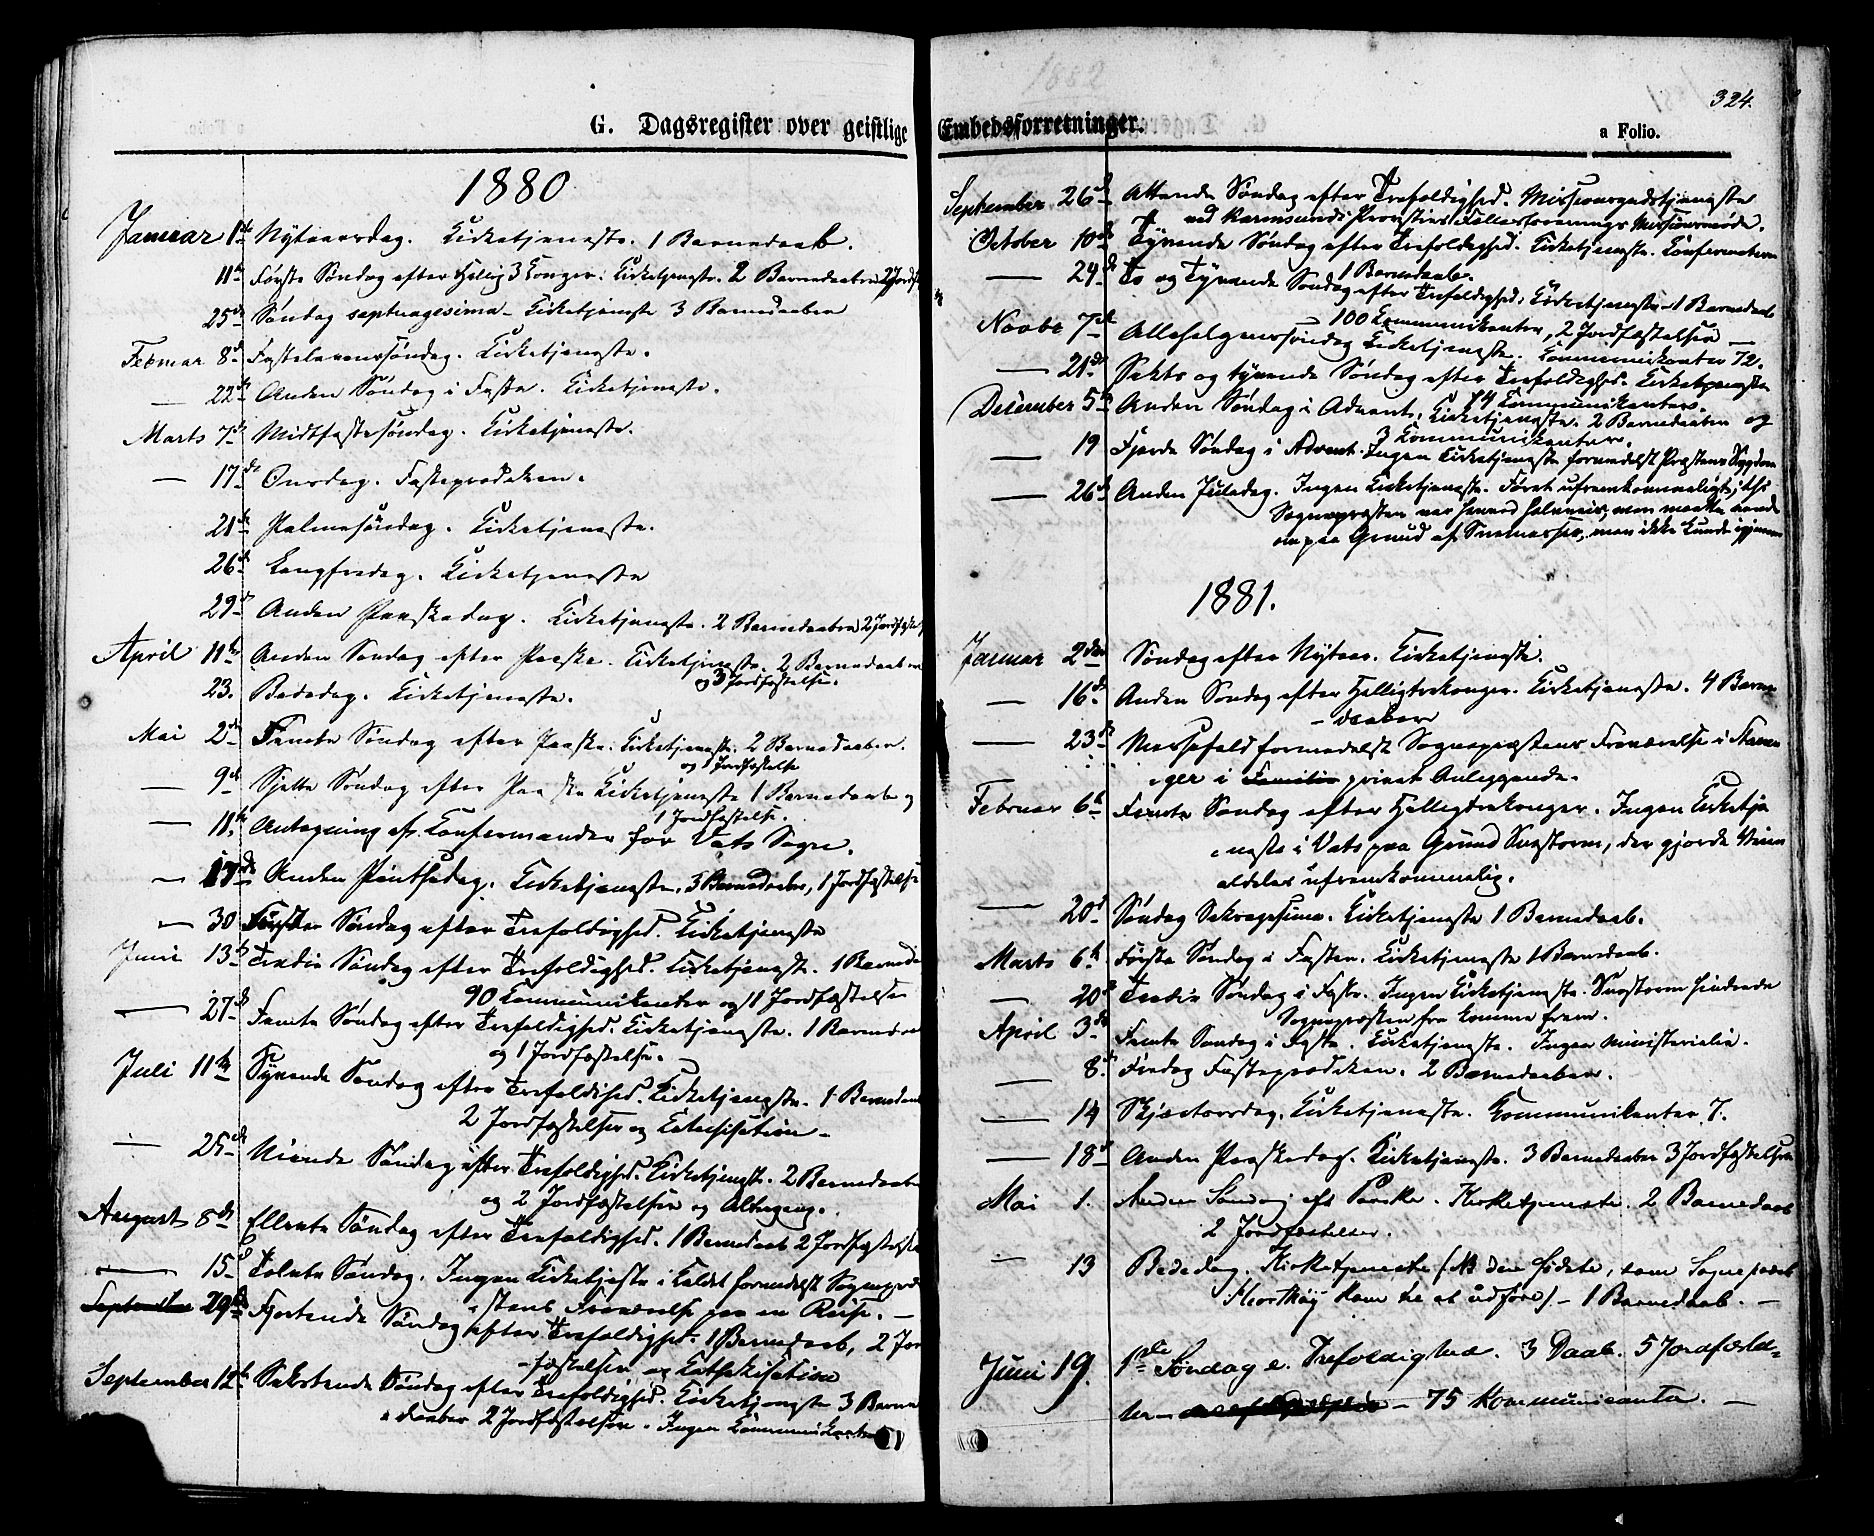 G. Dagsregister over geistlige
1880
Januar 1ste Nytaarsdag. Kirketjeneste. 1 Barnedaab.
11te Første Søndag efter Hellig 3 Konger. Kirketjeneste. 2 Barnedaabe 2 Jordf
25de Søndag septuagesima - Kirketjeneste 3 Barnedaaber
Februar 8de Fastelavnssøndag. Kirketjeneste.
— 22de Anden Søndag i Faste. Kirketjeneste.
Marts 7de Midtfastesøndag. Kirketjeneste.
— 17de Onsdag. Fasteprædiken.
21de Palmesøndag. Kirketjeneste.
26de Langfredag. Kirketjeneste
29de Anden Paaskedag. Kirketjeneste. 2 Barnedaabe 2 Jordfæst
April 11te Anden Søndag efter Paaske. Kirketjeneste. 2 Barnedaabe
og 3 Jordfæstelse.
23. Bededag. Kirketjeneste.
Mai 2den Femte Søndag efter Paaske. Kirketjeneste. 2 Barnedaaber.
og 1 Jordfæstelse
— 9de Sjette Søndag efter Paaske Kirketjeneste 1 Barnedaab og
1 Jordfæstelse.
— 11te Antagning af Konfirmander for Vats Sogn.
— 17de Anden Pintsedag. Kirketjeneste. 3 Barnedaabe, 1 Jordfæstelse
— 30 Første Søndag efter Trefoldighed. Kirketjeneste
Juni 13de Tredie Søndag efter Trefoldighed. Kirketjeneste. 1 Barneda
90 Kommunikanter og 1 Jordfæstelse
— 27de Femte Søndag efter Trefoldighed. Kirketjeneste. 1 Barnedaa
og 1 Jordfæstelse.
Juli 11te Syvende Søndag efter Trefoldighed. Kirketjeneste. 1 Barnedaab
2 Jordfæstelser og Katechisation -
— 25de Niende Søndag efter Trefoldighed. Kirketjeneste. 2 Barnedaabe
og 2 Jordfæstelser og Altergang.
August 8de Ellevte Søndag efter Trefoldighed. 1 Barnedaab 2 Jordfæstelse
— 15de Tolvte Søndag. Ingen Kirketjeste i Kaldet formedelst Sognepræ
stens Fraværelse paa en Reise. —
September 29de Fjortende Søndag efter Trefoldighed. 1 Barnedaab, 2 Jor
-fæstelser og Kathekisation
September 12te Sekstende Søndag efter Trefoldighed. Kirketjeneste 3 Barne
daaber 2 Jordfæstelser. Ingen Kommunikanter
Embedsforretninger.
324.
a Folio.
1882
September 26de Attende Søndag efter Trefoldighed. Missionsgudstjeneste
ved Karmsunds Provsties Fællesforenings Missionsmøde.
October 10de Tyvende Søndag efter Trefoldighed. Kirketjeneste. Konfirmation
1 Barnedaab.
— 24de To og Tyvende Søndag efter Trefoldighed. Kirketjeneste - 1 Barnedaab
100 Kommunikanter, 2 Jordfæstelser —
Novbr 7de Allehelgenssøndag Kirketjeneste. Kommunikanter 72.
— 21de Sekts og tyvende Søndag efter Trefoldighed. Kirketjeneste
14 Kommunikanter.
December 5te Anden Søndag i Advent. Kirketjeneste. 2 Barnedaaber og
3 Kommunikanter.
— 19 Fjerde Søndag i Advent. Ingen Kirketjeneste formedelst Præstens Sygdom
— 26de Anden Juledag. Ingen Kirketjeneste. Føret ufremkommeligt, thi
Sognepræsten var henved halvveis, men maatte vende
om paa Grund af Snemasser, man ikke kunde igjennem
1881.
Januar 2den Søndag efter Nytaar. Kirketjeneste.
— 16de Anden Søndag efter Helligtrekonger. Kirketjeneste. 4 Barne
-daaber
— 23de Messefald formedelst Sognepræstens Fraværelse i Stavan
ger i Familie privat Anliggende.
Februar 6te Femte Søndag efter Helligtrekonger. Ingen Kirketje
neste i Vats paa Grund Snestorm, der gjorde Veien
aldeles ufremkommelig.
— 20de Søndag Seksagesima. Kirketjeneste 1 Barnedaab.
Marts 6te Første Søndag i Fasten. Kirketjeneste 1 Barnedaab.
— 20de Tredie Søndag i Faste. Ingen Kirketjeneste. Snestorm hindrede
Sognepræsten fra komme frem.
April 3de Femte Søndag i Faste. Kirketjeneste. Ingen Ministerialia.
— 8de Fredag Fasteprædiken. 2 Barnedaaber.
— 14 Skjærtorsdag. Kirketjeneste. Kommunikanter 7.
— 18de Anden Paaskedag. Kirketjeneste. 3 Barnedaaber 3 Jordfæstelser
Mai 1. Anden Søndag eft Paaske. Kirketjeneste. 2 Barnedaab
2 Jordfæstelser.
— 13 Bededag. Kirketjeneste (NB den sidste, som Sognepræst
Hertkøy kom til at udføre). - 1 Barnedaab. —
Juni 19. 1ste Søndag e. Trefoldighed. 3 Daab. 5 Jordfæstel-
ser — 75 Kommunicanter. —